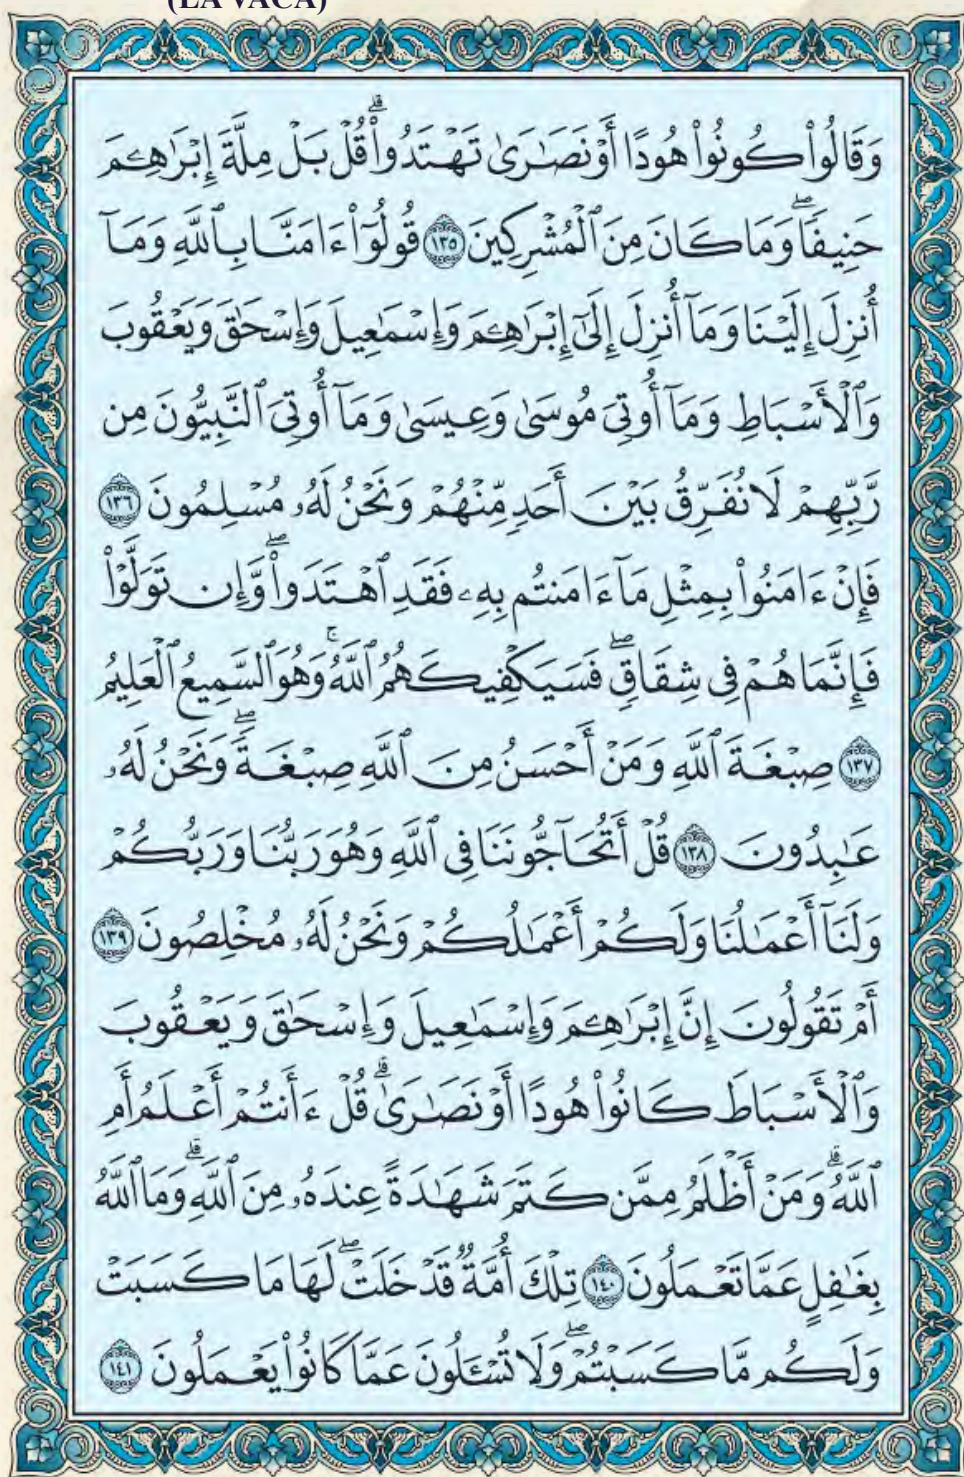 (LA VACA)
وَقَالُوا۟ كُونُوا۟ هُودًا أَوْ نَصَـٰرَىٰ تَهْتَدُوا۟ ۗ قُلْ بَلْ مِلَّةَ إِبْرَٰهِـۧمَ
حَنِيفًا ۖ وَمَا كَانَ مِنَ ٱلْمُشْرِكِينَ ١٣٥ قُولُوٓا۟ ءَامَنَّا بِٱللَّهِ وَمَآ
أُنزِلَ إِلَيْنَا وَمَآ أُنزِلَ إِلَىٰٓ إِبْرَٰهِـۧمَ وَإِسْمَـٰعِيلَ وَإِسْحَـٰقَ وَيَعْقُوبَ
وَٱلْأَسْبَاطِ وَمَآ أُوتِىَ مُوسَىٰ وَعِيسَىٰ وَمَآ أُوتِىَ ٱلنَّبِيُّونَ مِن
رَّبِّهِمْ لَا نُفَرِّقُ بَيْنَ أَحَدٍ مِّنْهُمْ وَنَحْنُ لَهُۥ مُسْلِمُونَ ١٣٦
فَإِنْ ءَامَنُوا۟ بِمِثْلِ مَآ ءَامَنتُم بِهِۦ فَقَدِ ٱهْتَدَوا۟ ۖ وَّإِن تَوَلَّوْا۟
فَإِنَّمَا هُمْ فِى شِقَاقٍ ۖ فَسَيَكْفِيكَهُمُ ٱللَّهُ ۚ وَهُوَ ٱلسَّمِيعُ ٱلْعَلِيمُ
١٣٧ صِبْغَةَ ٱللَّهِ وَمَنْ أَحْسَنُ مِنَ ٱللَّهِ صِبْغَةً ۖ وَنَحْنُ لَهُۥ
عَـٰبِدُونَ ١٣٨ قُلْ أَتُحَآجُّونَنَا فِى ٱللَّهِ وَهُوَ رَبُّنَا وَرَبُّكُمْ
وَلَنَآ أَعْمَـٰلُنَا وَلَكُمْ أَعْمَـٰلُكُمْ وَنَحْنُ لَهُۥ مُخْلِصُونَ ١٣٩
أَمْ تَقُولُونَ إِنَّ إِبْرَٰهِـۧمَ وَإِسْمَـٰعِيلَ وَإِسْحَـٰقَ وَيَعْقُوبَ
وَٱلْأَسْبَاطَ كَانُوا۟ هُودًا أَوْ نَصَـٰرَىٰ ۗ قُلْ ءَأَنتُمْ أَعْلَمُ أَمِ
ٱللَّهُ ۗ وَمَنْ أَظْلَمُ مِمَّن كَتَمَ شَهَـٰدَةً عِندَهُۥ مِنَ ٱللَّهِ ۗ وَمَا ٱللَّهُ
بِغَـٰفِلٍ عَمَّا تَعْمَلُونَ ١٤٠ تِلْكَ أُمَّةٌ قَدْ خَلَتْ ۖ لَهَا مَا كَسَبَتْ
وَلَكُم مَّا كَسَبْتُمْ ۖ وَلَا تُسْـَٔلُونَ عَمَّا كَانُوا۟ يَعْمَلُونَ ١٤١